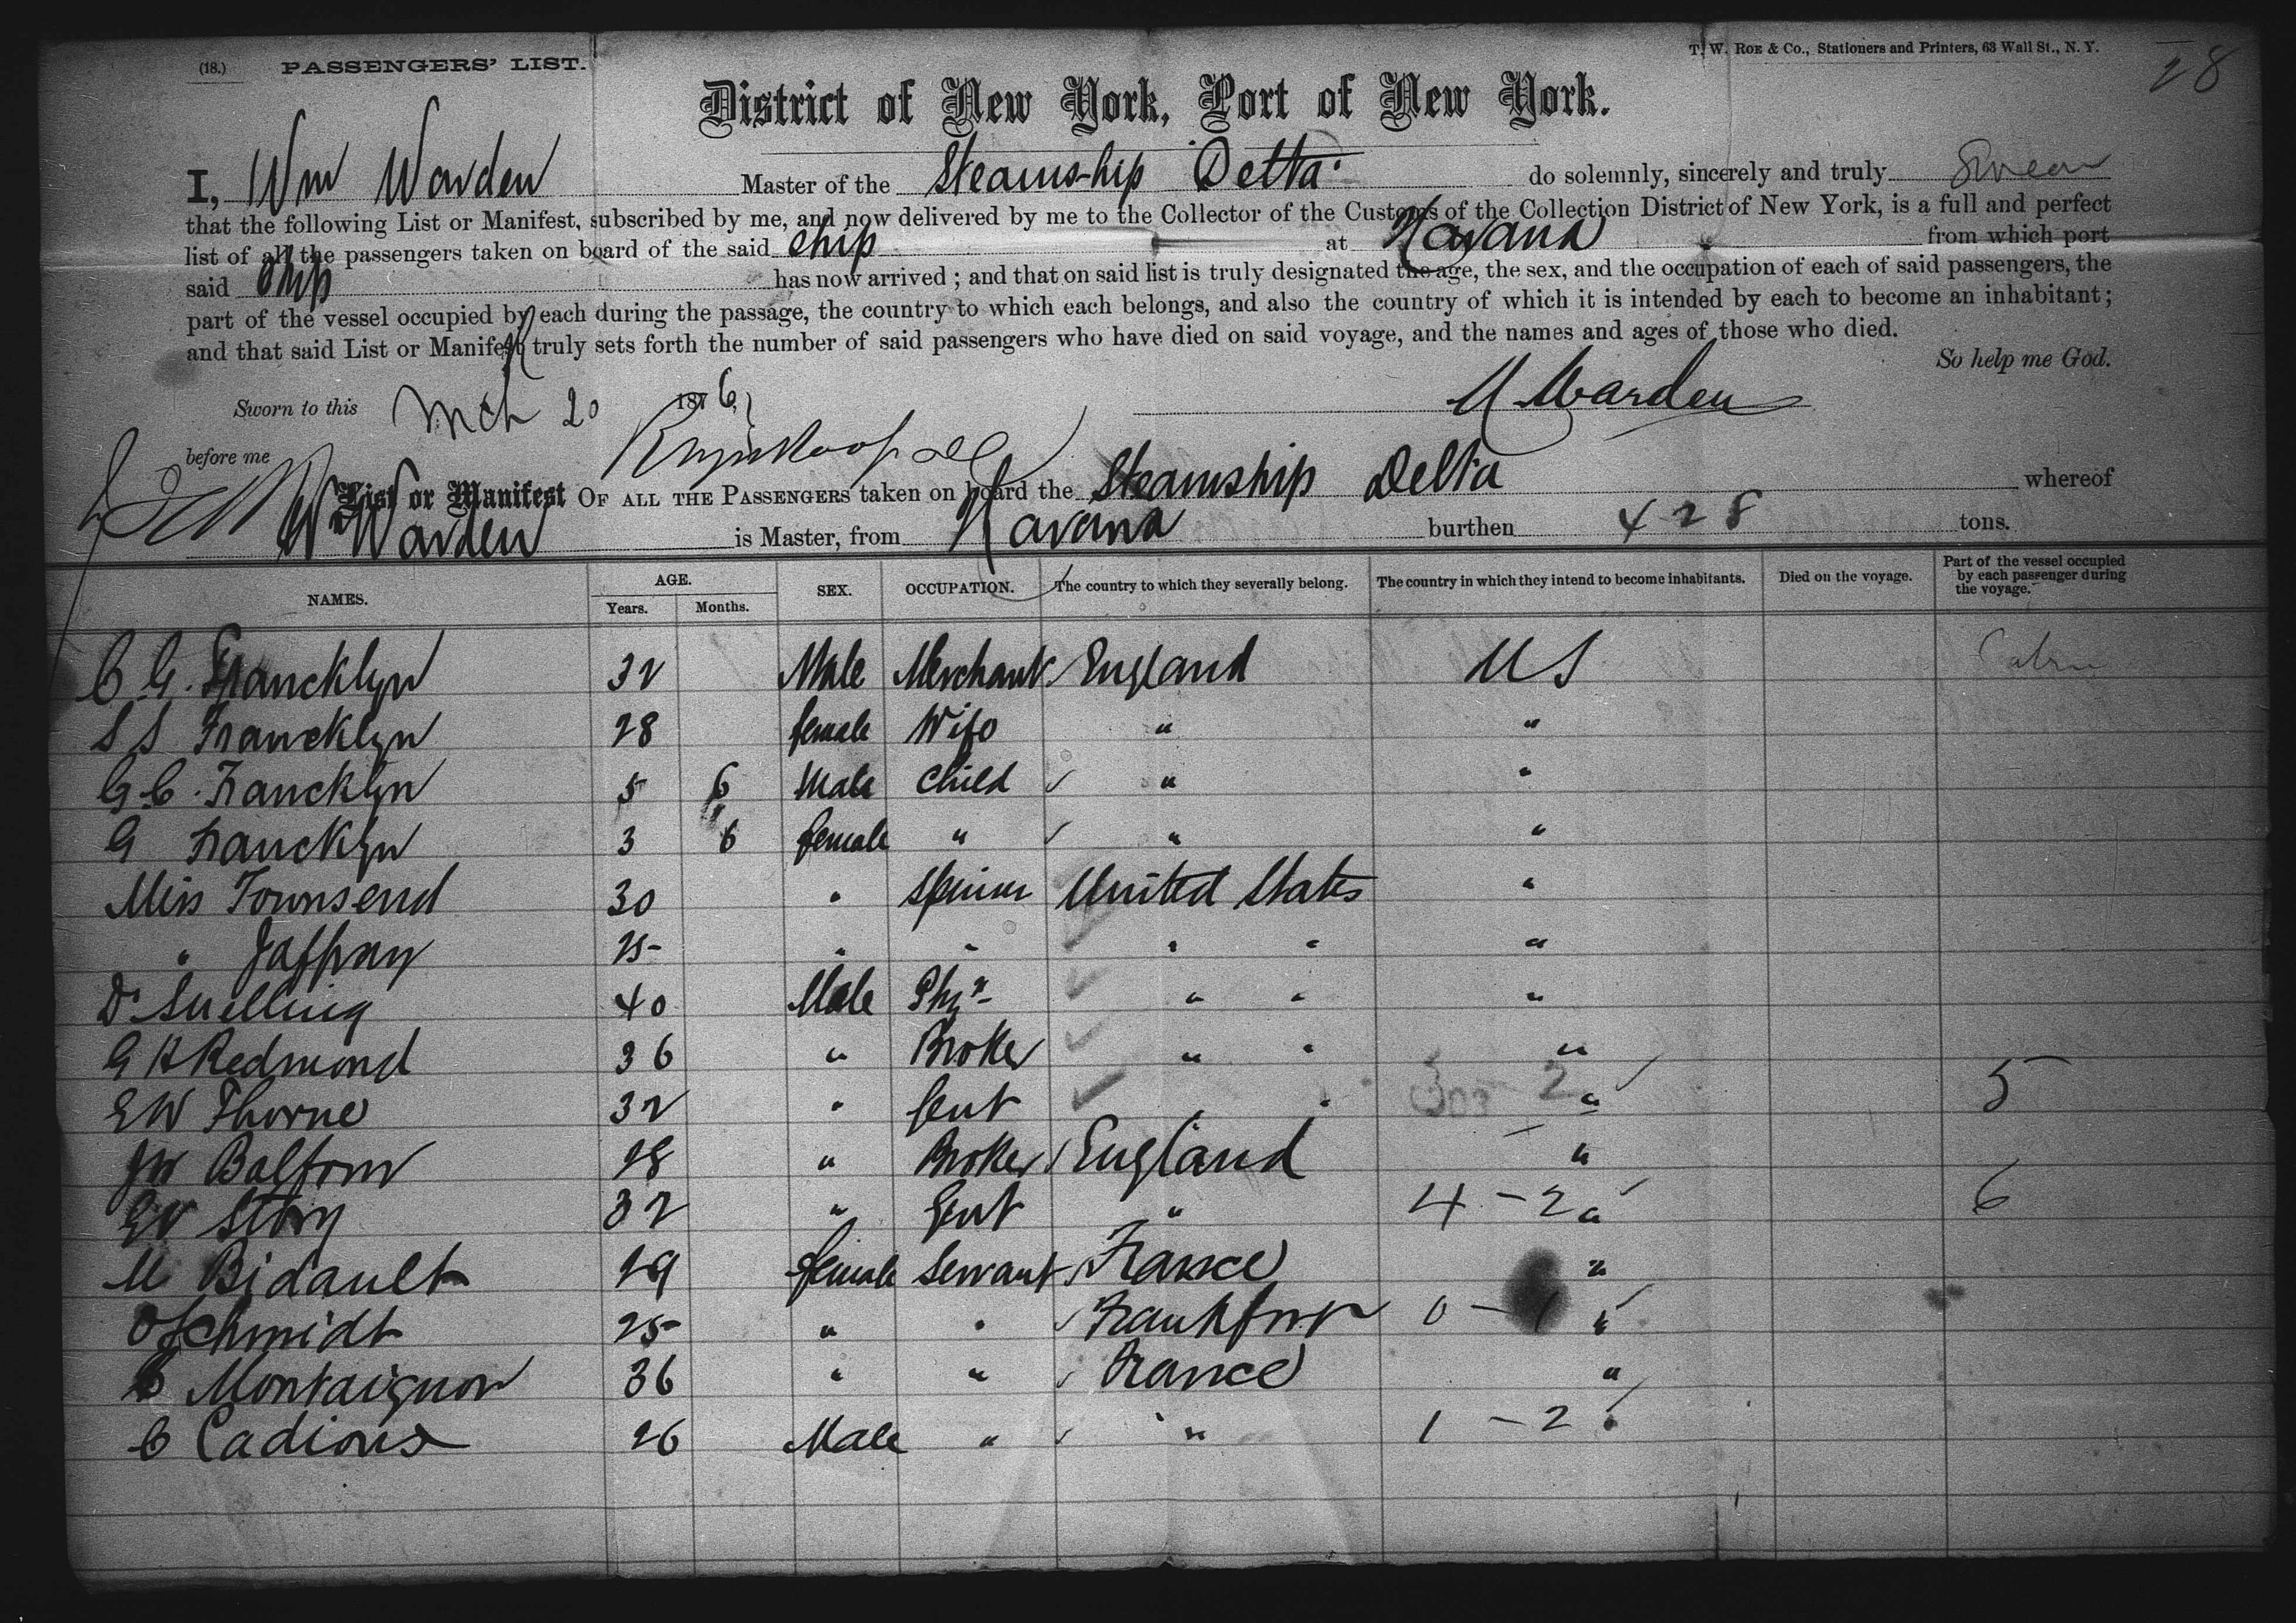 (18.) PASSENGERS' LIST.
T. W. ROE & Co., Stationers and Printers, 63 Wall St., N. Y.
28
District of New York, Port of New York.
I, Wm Warden Master of the Steamship Delta do solemnly, sincerely and truly Swear
that the following List or Manifest, subscribed by me, and now delivered by me to the Collector of the Customs of the Collection District of New York, is a full and perfect
list of all the passengers taken on board of the said Ship at Havana from which port
said Ship has now arrived; and that on said list is truly designated the age, the sex, and the occupation of each of said passengers, the
part of the vessel occupied by each during the passage, the country to which each belongs, and also the country of which it is intended by each to become an inhabitant;
and that said List or Manifest truly sets forth the number of said passengers who have died on said voyage, and the names and ages of those who died.
So help me God.
Sworn to this Mch 20 1876, Warden
before me
List or Manifest OF ALL THE PASSENGERS taken on board the Steamship Delta whereof
Wm Warden is Master, from Havana burthen 428 tons.
NAMES. AGE. Years. Months. SEX. OCCUPATION. The country to which they severally belong. The country in which they intend to become inhabitants. Died on the voyage. Part of the vessel occupied by each passenger during the voyage.
C G. Francklyn 32 Male Merchant England US Cabin
S S Francklyn 28 female Wife " "
G C. Francklyn 5 6 Male Child " "
G Francklyn 3 6 female " " "
Miss Townsend 30 " United States "
" Jaffray 25 " " " " "
Dr Snelling 40 Male Phyn " " "
G H Redmond 36 " Broker " " "
E W Thorne 32 " Gent " " 2 " 5
J W Balfour 28 " Broker England "
E V Story 32 " Gent " 4 - 2 " 6
M Bidault 29 female Servant France "
O Schmidt 25 " " Frankfort 0 - 1 "
C Montaignor 36 " " France "
C Cadioux 26 Male " " 1 - 2 "